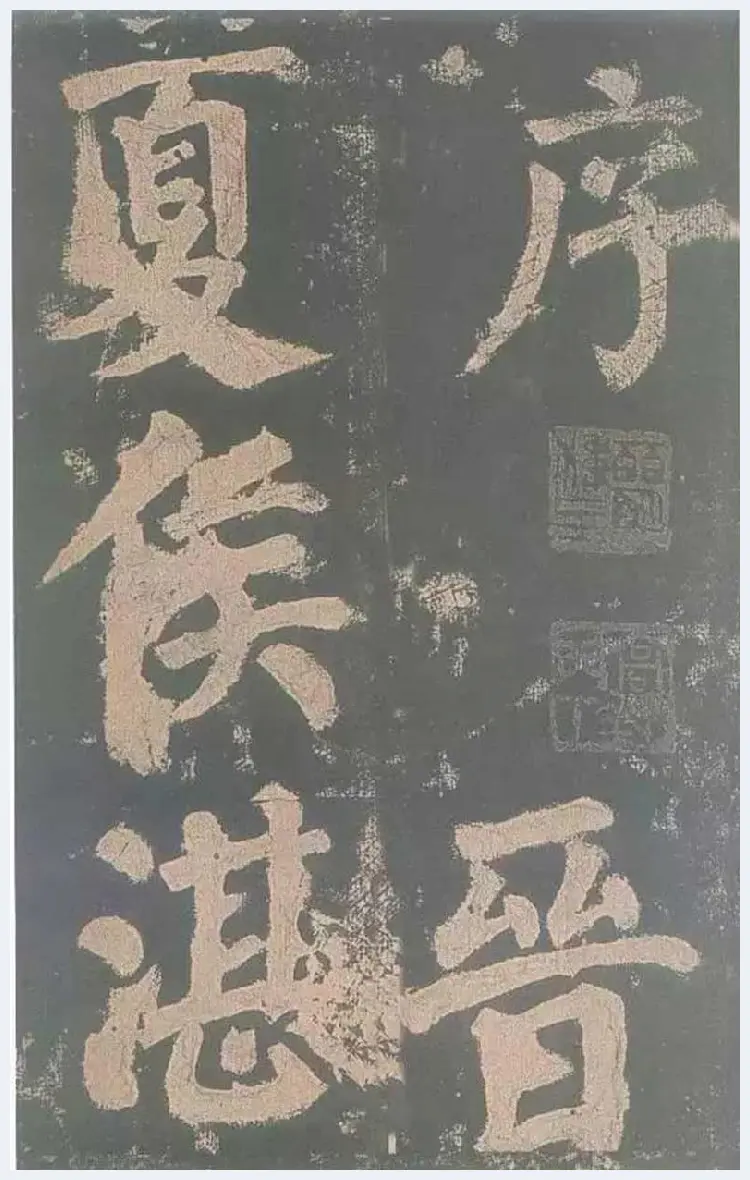 序
晉
夏侯湛